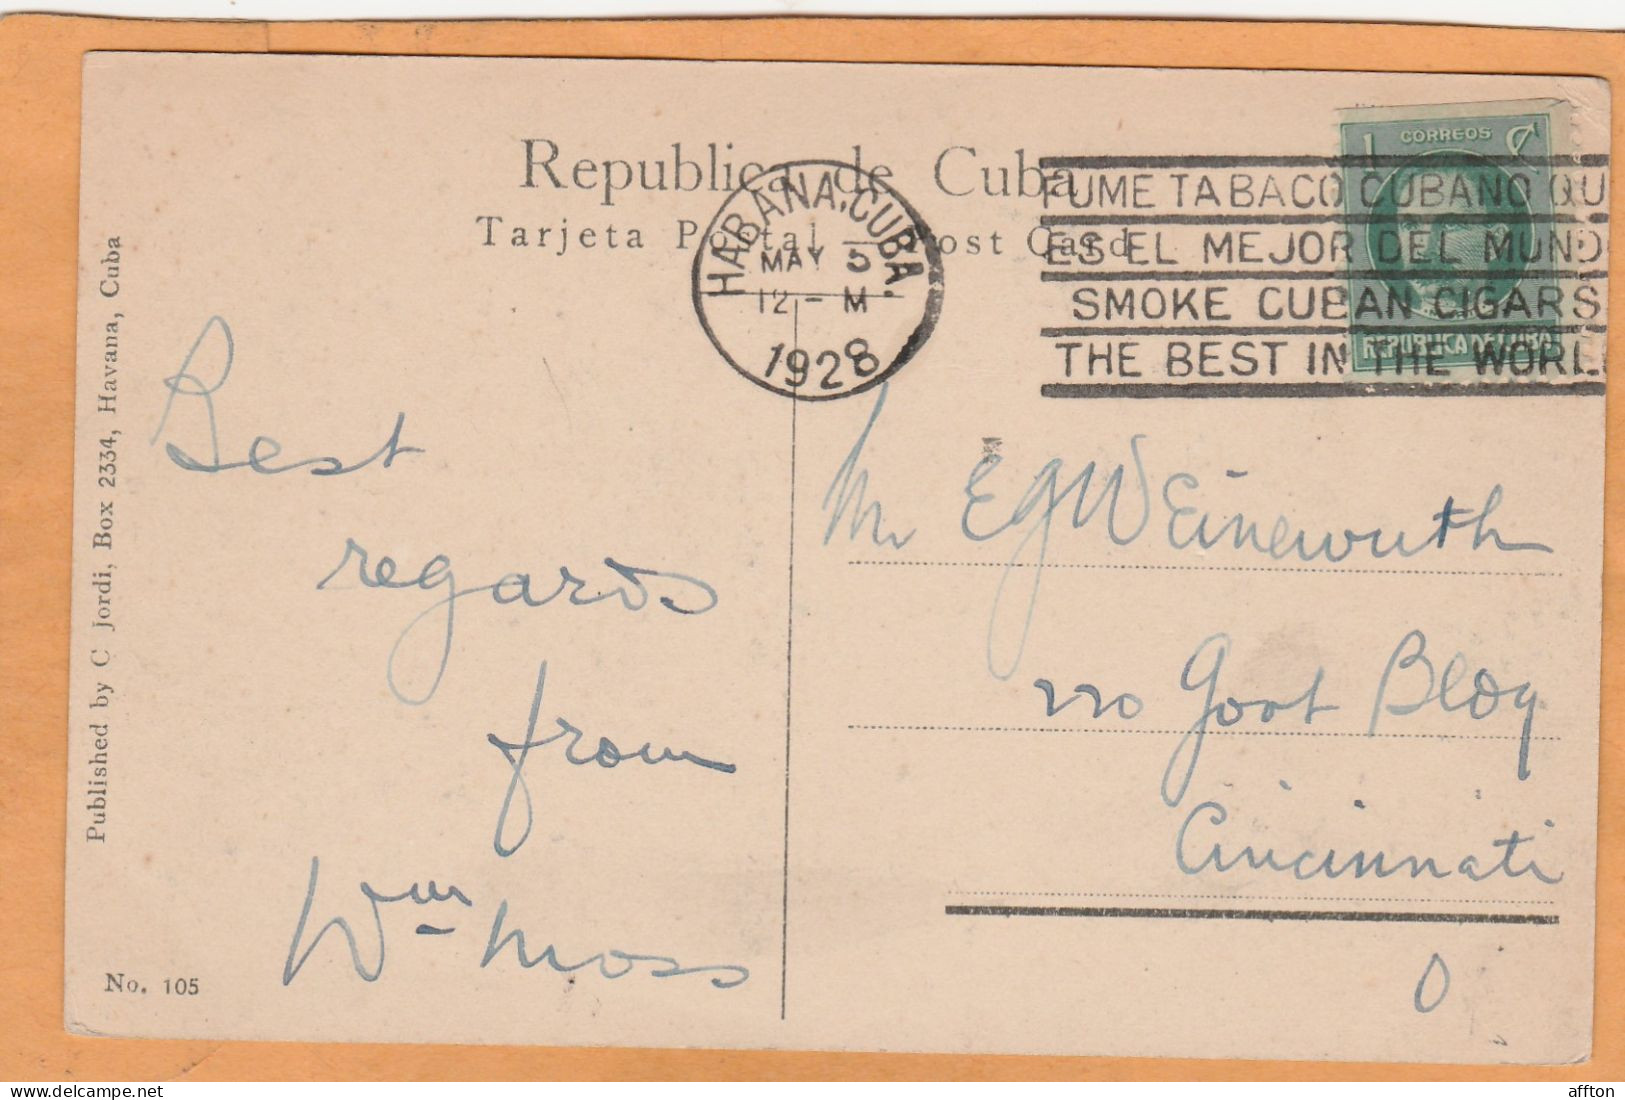 Republica de Cuba
Tarjeta Postal — Post Card
HABANA, CUBA.
MAY 5
12 - M
1928
FUME TABACO CUBANO QU
ES EL MEJOR DEL MUNDO
SMOKE CUBAN CIGARS
THE BEST IN THE WORL
CORREOS
1 C
REPUBLICA DE CUBA
Best
regards
from
Wm Moss
Mr E G W
Govt Bldg
Cincinnati
O
Published by C Jordi, Box 2334, Havana, Cuba
No. 105
affton